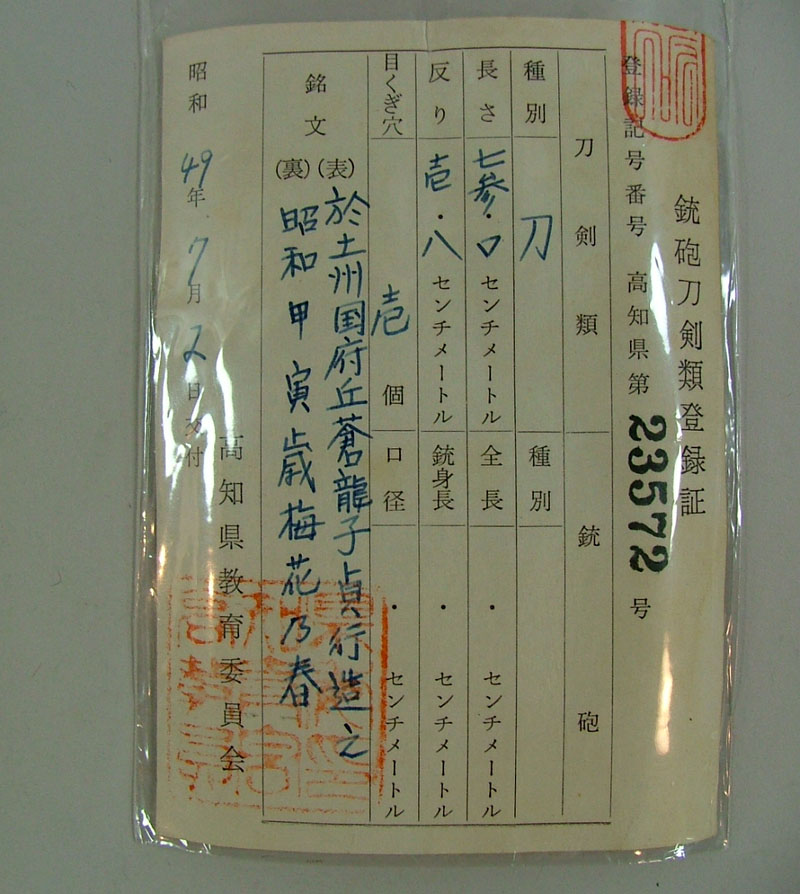 銃砲刀剣類登録証
登録記号番号 高知県第 23572 号
刀剣類 銃砲
種別 刀 種別
長さ 七参・〇センチメートル 全長 ・ センチメートル
反り 壱・八センチメートル 銃身長 ・ センチメートル
目くぎ穴 壱個 口径 ・ センチメートル
銘文 (表) 於土州国府丘蒼龍子貞行造之
(裏) 昭和甲寅歳梅花乃春
昭和49年7月2日交付
高知県教育委員会